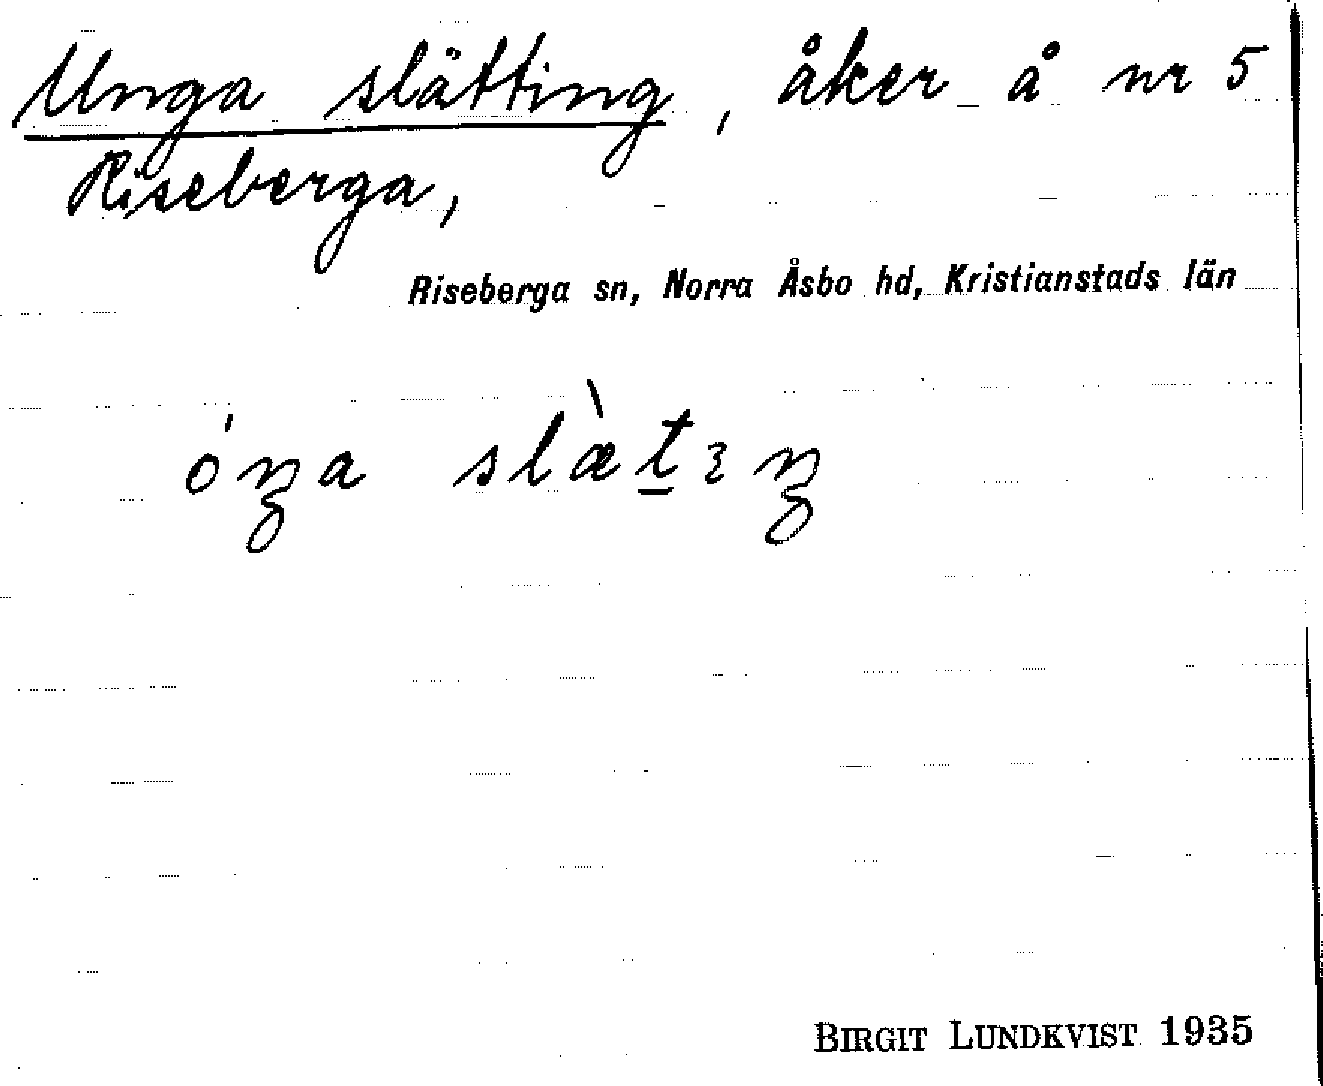 Unga slätting, åker å nr 5
Riseberga,
Riseberga sn, Norra Åsbo hd, Kristianstads län
óŋa slæ̀t̲ɪŋ
BIRGIT LUNDKVIST 1935